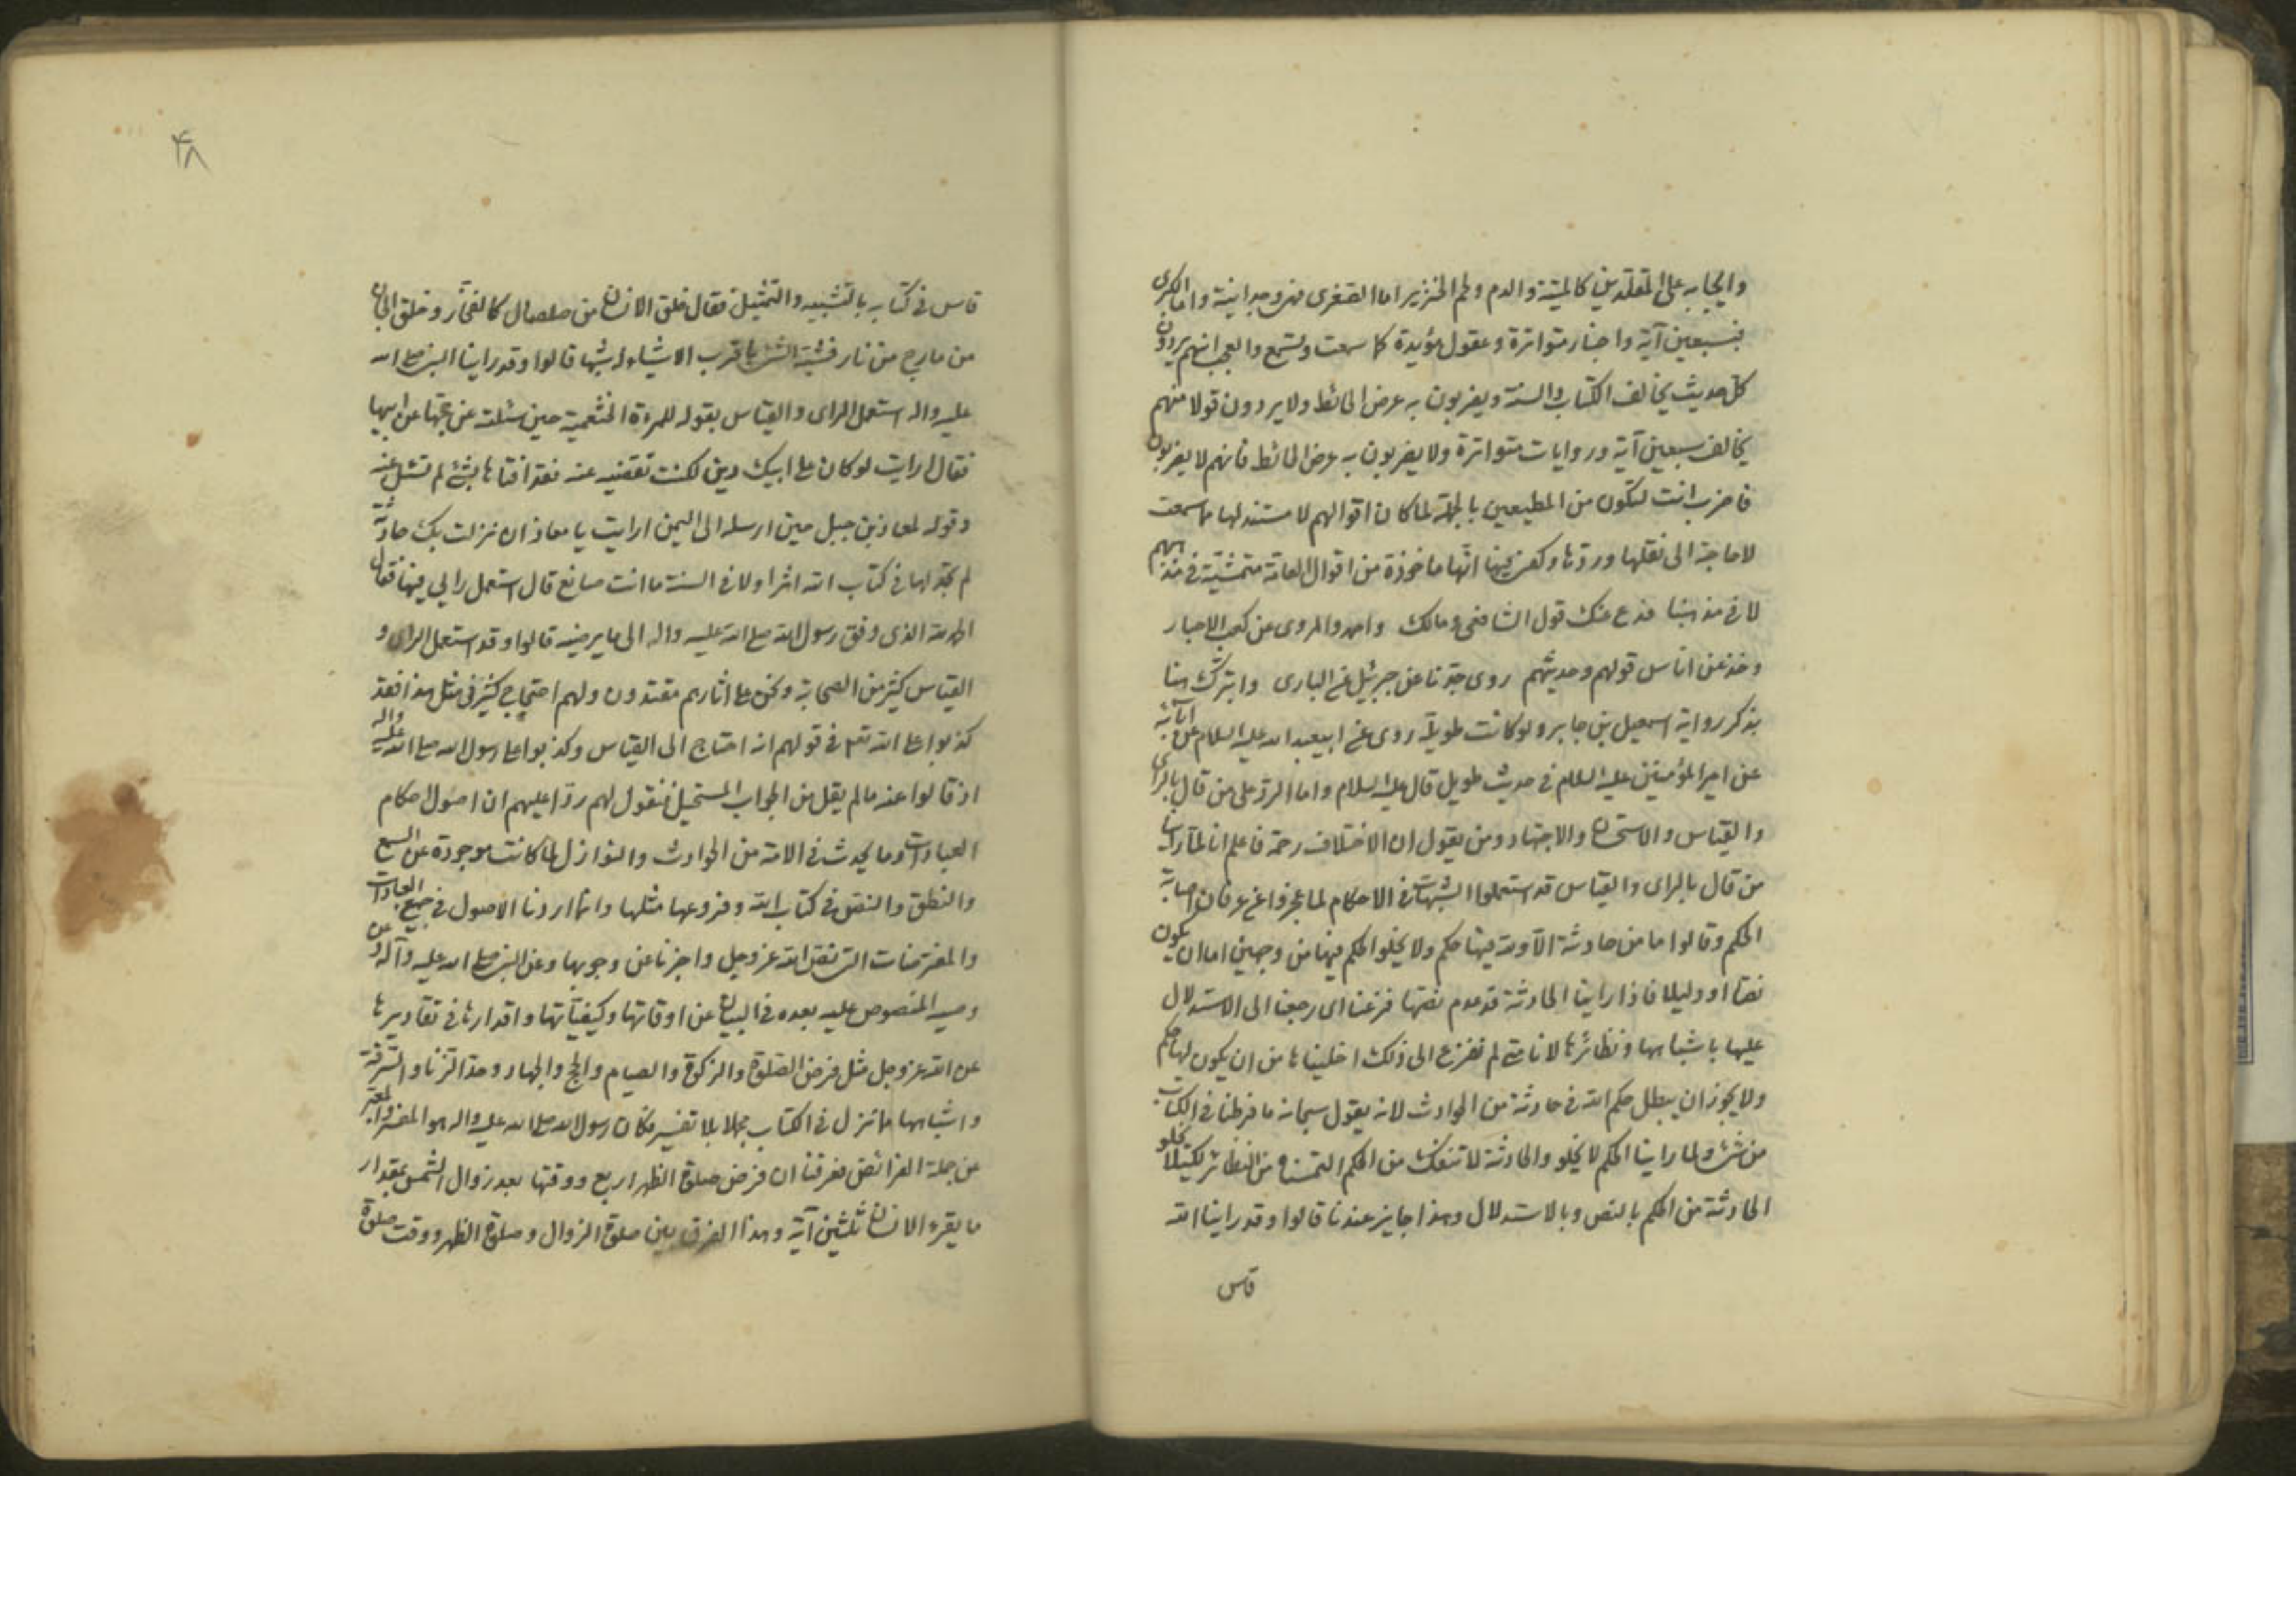 وايجابه على المقلدين كالميتة والدم ولحم الخنزير اما الصغرى فهى وجدانية واما الكبرى
فبسبعين آية واخبار متواترة وعقول مؤيدة كما سمعت وتسمع والعجب انهم يردون
كل حديث يخالف الكتاب والسنة ويضربون به عرض الحائط ولا يردون قولا منهم
يخالف سبعين آية وروايات متواترة ولا يضربون به عرض الحائط فانهم لا يضربون
فاضرب انت لتكون من المطيعين بالجملة لما كان اقوالهم لا مستند لها ما سمعت
لا حاجة الى نقلها وردّها وكفى فيها انّها ماخوذة من اقوال العامة متمشّية فى مذهبهم
لا فى مذهبنا فدع عنك قول الشافعى ومالك واحمد والمروى عن كعب الاحبار
وخذ عن اناس قولهم وحديثهم روى جدّنا عن جبرئيل عن البارى ولنتبرّك هنا
بذكر رواية اسمعيل بن جابر ولو كانت طويلة روى عن ابيعبد الله عليه السلام عن آبائه
عن امير المؤمنين عليه السلام فى حديث طويل قال عليه السلام واما الرد على من قال بالراى
والقياس والاستحسان والاجتهاد ومن يقول ان الاختلاف رحمة فاعلم انا لما راينا
من قال بالراى والقياس قد استعملوا الشبهات فى الاحكام لما عجزوا عن عرفان اصابة
الحكم وقالوا ما من حادثة الا ولله فيها حكم ولا يخلوا الحكم فيها من وجهين اما ان يكون
نصّا او دليلا فاذا راينا الحادثة قد عدم نصّها فزعنا اى رجعنا الى الاستدلال
عليها باشباهها ونظائرها لانا متى لم نفزع الى ذلك اخليناها من ان يكون لها حكم
ولا يجوز ان يبطل حكم الله فى حادثة من الحوادث لانه يقول سبحانه ما فرطنا فى الكتاب
من شئ ولما راينا الحكم لا يخلو والحادثة لا تنفك من الحكم التمسناه من النظائر لكيلا تخلو
الحادثة من الحكم بالنص وبالاستدلال وهذا جايز عندنا قالوا وقد راينا الله
قاس
۴۸
قاس فى كتابه بالتشبيه والتمثيل فقال خلق الانسان من صلصال كالفخّار وخلق الجان
من مارج من نار فشبّه الشئ باقرب الاشياء له شبها قالوا وقد راينا النبى صلى الله
عليه واله استعمل الراى والقياس بقوله للمرءة الخثعمية حين سئلته عن حجّها عن ابيها
فقال ارايت لو كان على ابيك دين لكنت تقضينه عنه فقد افتاها بشئ لم تسئل عنه
وقوله لمعاذ بن جبل حين ارسله الى اليمن ارايت يا معاذ ان نزلت بك حادثة
لم تجد لها فى كتاب الله اثرا ولا فى السنة ما انت صانع قال استعمل رايى فيها فقال
الحمد لله الذى وفق رسول الله صلى الله عليه واله الى ما يرضيه قالوا وقد استعمل الراى و
القياس كثير من الصحابة ونحن على اثارهم مقتدون ولهم احتجاج كثير فى مثل هذا فقد
كذبوا على الله تعالى فى قولهم انه احتاج الى القياس وكذبوا على رسول الله صلى الله عليه واله
اذ قالوا عنه ما لم يقل من الجواب المستحيل فنقول لهم ردّا عليهم ان اصول احكام
العبادات وما يحدث فى الامة من الحوادث والنوازل لما كانت موجودة عن السمع
والنطق والنص فى كتاب الله وفروعها مثلها وانما اردنا الاصول فى جميع العبادات
والمفترضات التى نصّ الله عز وجل واخبرنا عن وجوبها وعن النبى صلى الله عليه وآله وعن
وصيه المنصوص عليه بعده فى البيان عن اوقاتها وكيفيّاتها واقدارها فى تقاديرها
عن الله عز وجل مثل فرض الصلوة والزكوة والصيام والحج والجهاد وحد الزنا والسرقة
واشباهها مما نزل فى الكتاب مجملا بلا تفسير فكان رسول الله صلى الله عليه واله هو المفسر والمعبّر
عن جملة الفرائض فعرفنا ان فرض صلوة الظهر اربع ووقتها بعد زوال الشمس بمقدار
ما يقرء الانسان ثلثين آية وهذا الفرق بين صلوة الزوال وصلوة الظهر ووقت صلوة